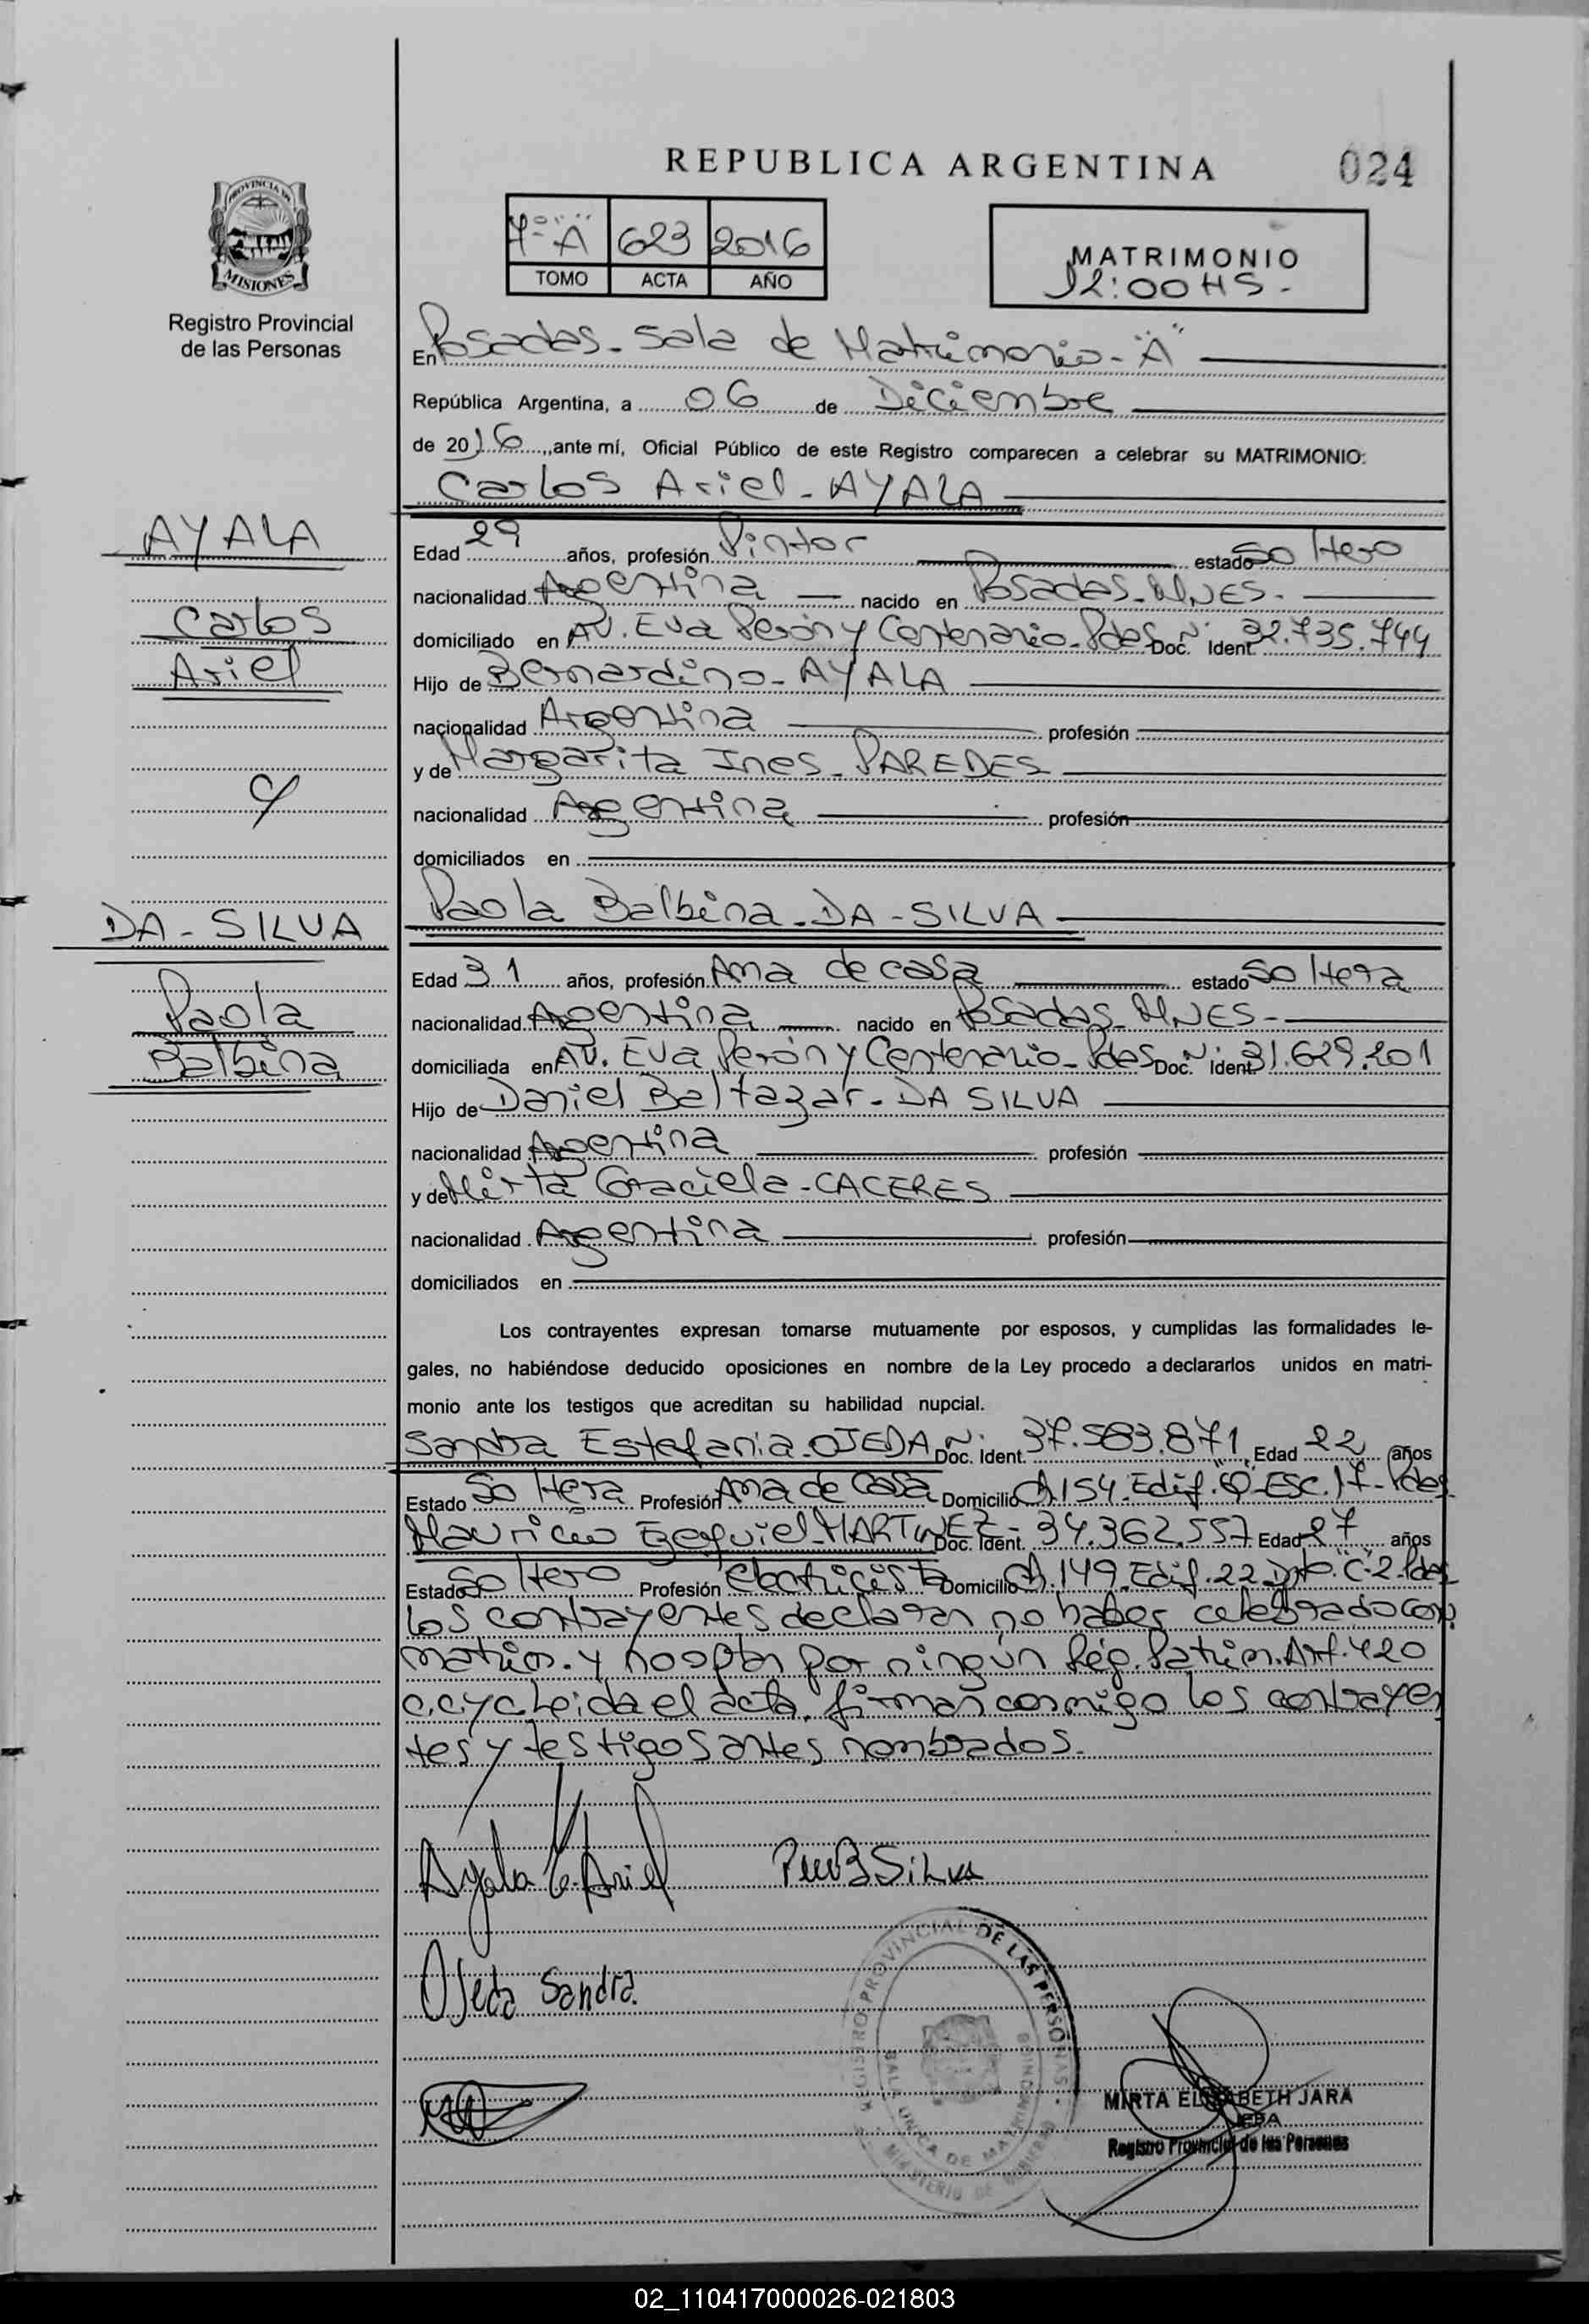 REPUBLICA ARGENTINA
024
PROVINCIA DE
MISIONES
Registro Provincial
de las Personas
7º "A" 623 2016
TOMO ACTA AÑO
MATRIMONIO
12:00 HS.-
En Posadas - Sala de Matrimonio - "A"
República Argentina, a 06 de Diciembre
de 2016, ante mí, Oficial Público de este Registro comparecen a celebrar su MATRIMONIO:
Carlos Ariel - AYALA
AYALA
Carlos
Ariel
Edad 29 años, profesión Pintor estado Soltero
nacionalidad Argentina nacido en Posadas - MNES.
domiciliado en AV. Eva Perón y Centenario - Pdas Doc. N: Ident. 32.735.744
Hijo de Bernardino - AYALA
nacionalidad Argentina profesión
y de Margarita Ines - PAREDES
nacionalidad Argentina profesión
domiciliados en
y
DA - SILVA
Paola
Balbina
Paola Balbina - DA - SILVA
Edad 31 años, profesión Ama de casa estado Soltera
nacionalidad Argentina nacido en Posadas - MNES -
domiciliada en AV. Eva Perón y Centenario - Pdas Doc. N: Ident. 31.629.201
Hijo de Daniel Baltazar - DA SILVA
nacionalidad Argentina profesión
y de Mirta Graciela - CACERES
nacionalidad Argentina profesión
domiciliados en
Los contrayentes expresan tomarse mutuamente por esposos, y cumplidas las formalidades le-
gales, no habiéndose deducido oposiciones en nombre de la Ley procedo a declararlos unidos en matri-
monio ante los testigos que acreditan su habilidad nupcial.
Sandra Estefania - OJEDA Doc. N: Ident. 37.583.871 Edad 22 años
Estado Soltera Profesión Ama de Casa Domicilio Ch 154 - Edif. "Q" - ESC. 17 - Pdas
Mauricio Ezequiel - MARTINEZ - Doc. Ident. 34.362.557 Edad 27 años
Estado Soltero Profesión electricista Domicilio Ch. 149 - Edif. 22 Dpto. "C" - 2 - Pdas
los contrayentes declaran no haber celebrado conv.
matrim. y no optan por ningún Rég. Patrim. Art. 420
c.c y c Leida el acta, firman conmigo los contrayen
tes y testigos antes nombrados.
Ayala C. Ariel
Silva
Ojeda Sandra.
REGISTRO PROVINCIAL DE LAS PERSONAS
SALA UNICA DE MATRIMONIOS
MINISTERIO DE GOBIERNO
MIRTA ELIZABETH JARA
JEFA
Registro Provincial de las Personas
02_110417000026-021803